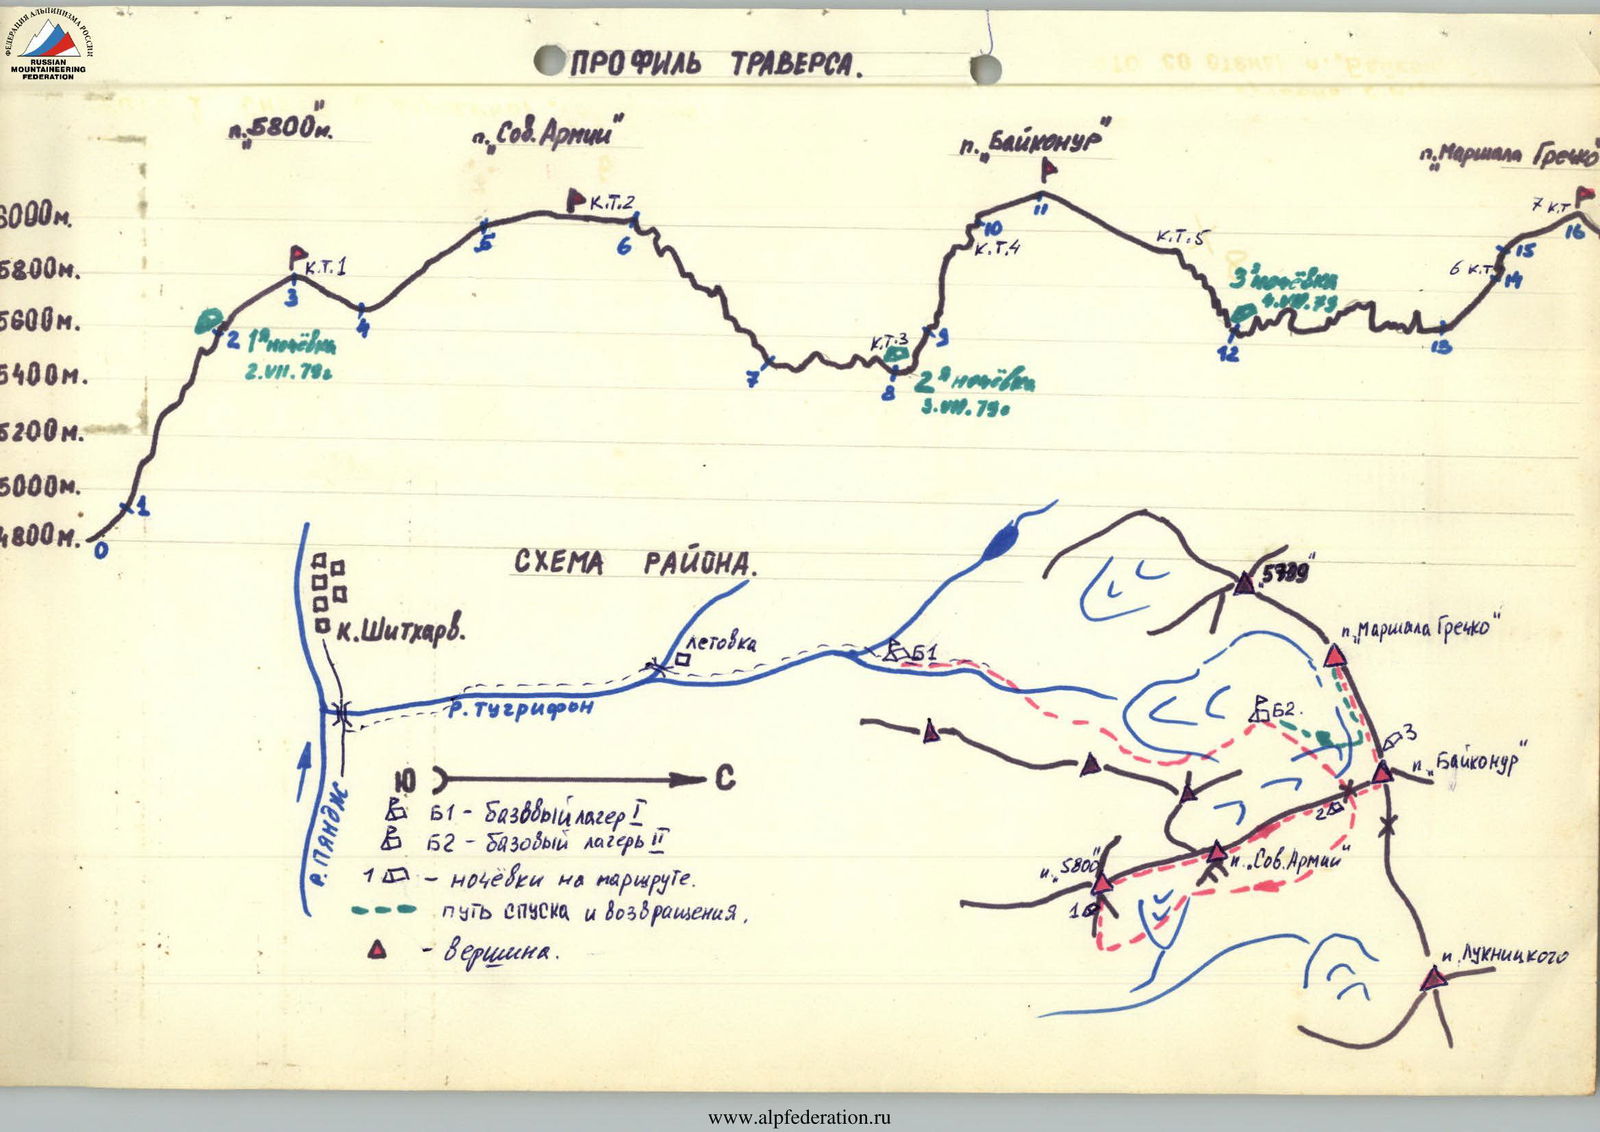 ФЕДЕРАЦИЯ АЛЬПИНИЗМА РОССИИ
RUSSIAN
MOUNTAINEERING
FEDERATION
ПРОФИЛЬ ТРАВЕРСА.
п. „5800м."
п. „Сов. Армии"
п. „Байконур"
п. „Маршала Гречко"
6000м.
5800м.
5600м.
5400м.
5200м.
5000м.
4800м.
К.Т.1
К.Т.2
К.Т.3
К.Т.4
К.Т.5
6 К.Т
7 К.Т
0
1
2
3
4
5
6
7
8
9
10
11
12
13
14
15
16
1я ночёвка
2.VII.79г
2я ночёвка
3.VIII.79г
3я ночёвка
4.VIII.79
СХЕМА РАЙОНА.
к. Шитхарв.
летовка
Б1
р. Тугрифон
Б2.
„5789"
п. „Маршала Гречко"
3
п. „Байконур"
2
п. „Сов. Армии"
п. „5800"
1
п. Лукницкого
Ю С
р. Пяндж
Б1 - базовый лагерь I
Б2 - базовый лагерь II
1 - ночёвки на маршруте.
путь спуска и возвращения.
- вершина.
www.alpfederation.ru